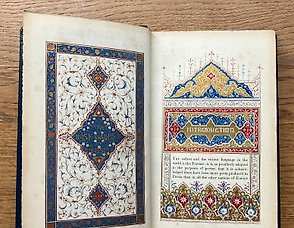 INTRODUCTION
THE oldest and the richest language in the
world is the Persian: it is so peculiarly adapted
to the purposes of poetry, that it is acknow-
ledged there have been more poets produced in
Persia than in all the other nations of Europe